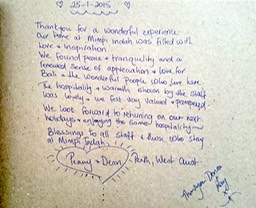 25-1-2015
Thankyou for a wonderful experience.
Our home at Mimpi Indah was filled with
Love + Inspiration.
We found peace + tranquility and a
renewed sense of appreciation + love for
Bali + the wonderful People who live here.
The hospitality + warmth shown by the staff
was lovely + we felt very valued + pampered.
We look forward to returning on our next
holidays + enjoying the same hospitality
Blessings to all staff + those who stay
at Mimpi Indah.
Penny + Dean, Perth, West Aust.
Thankyou